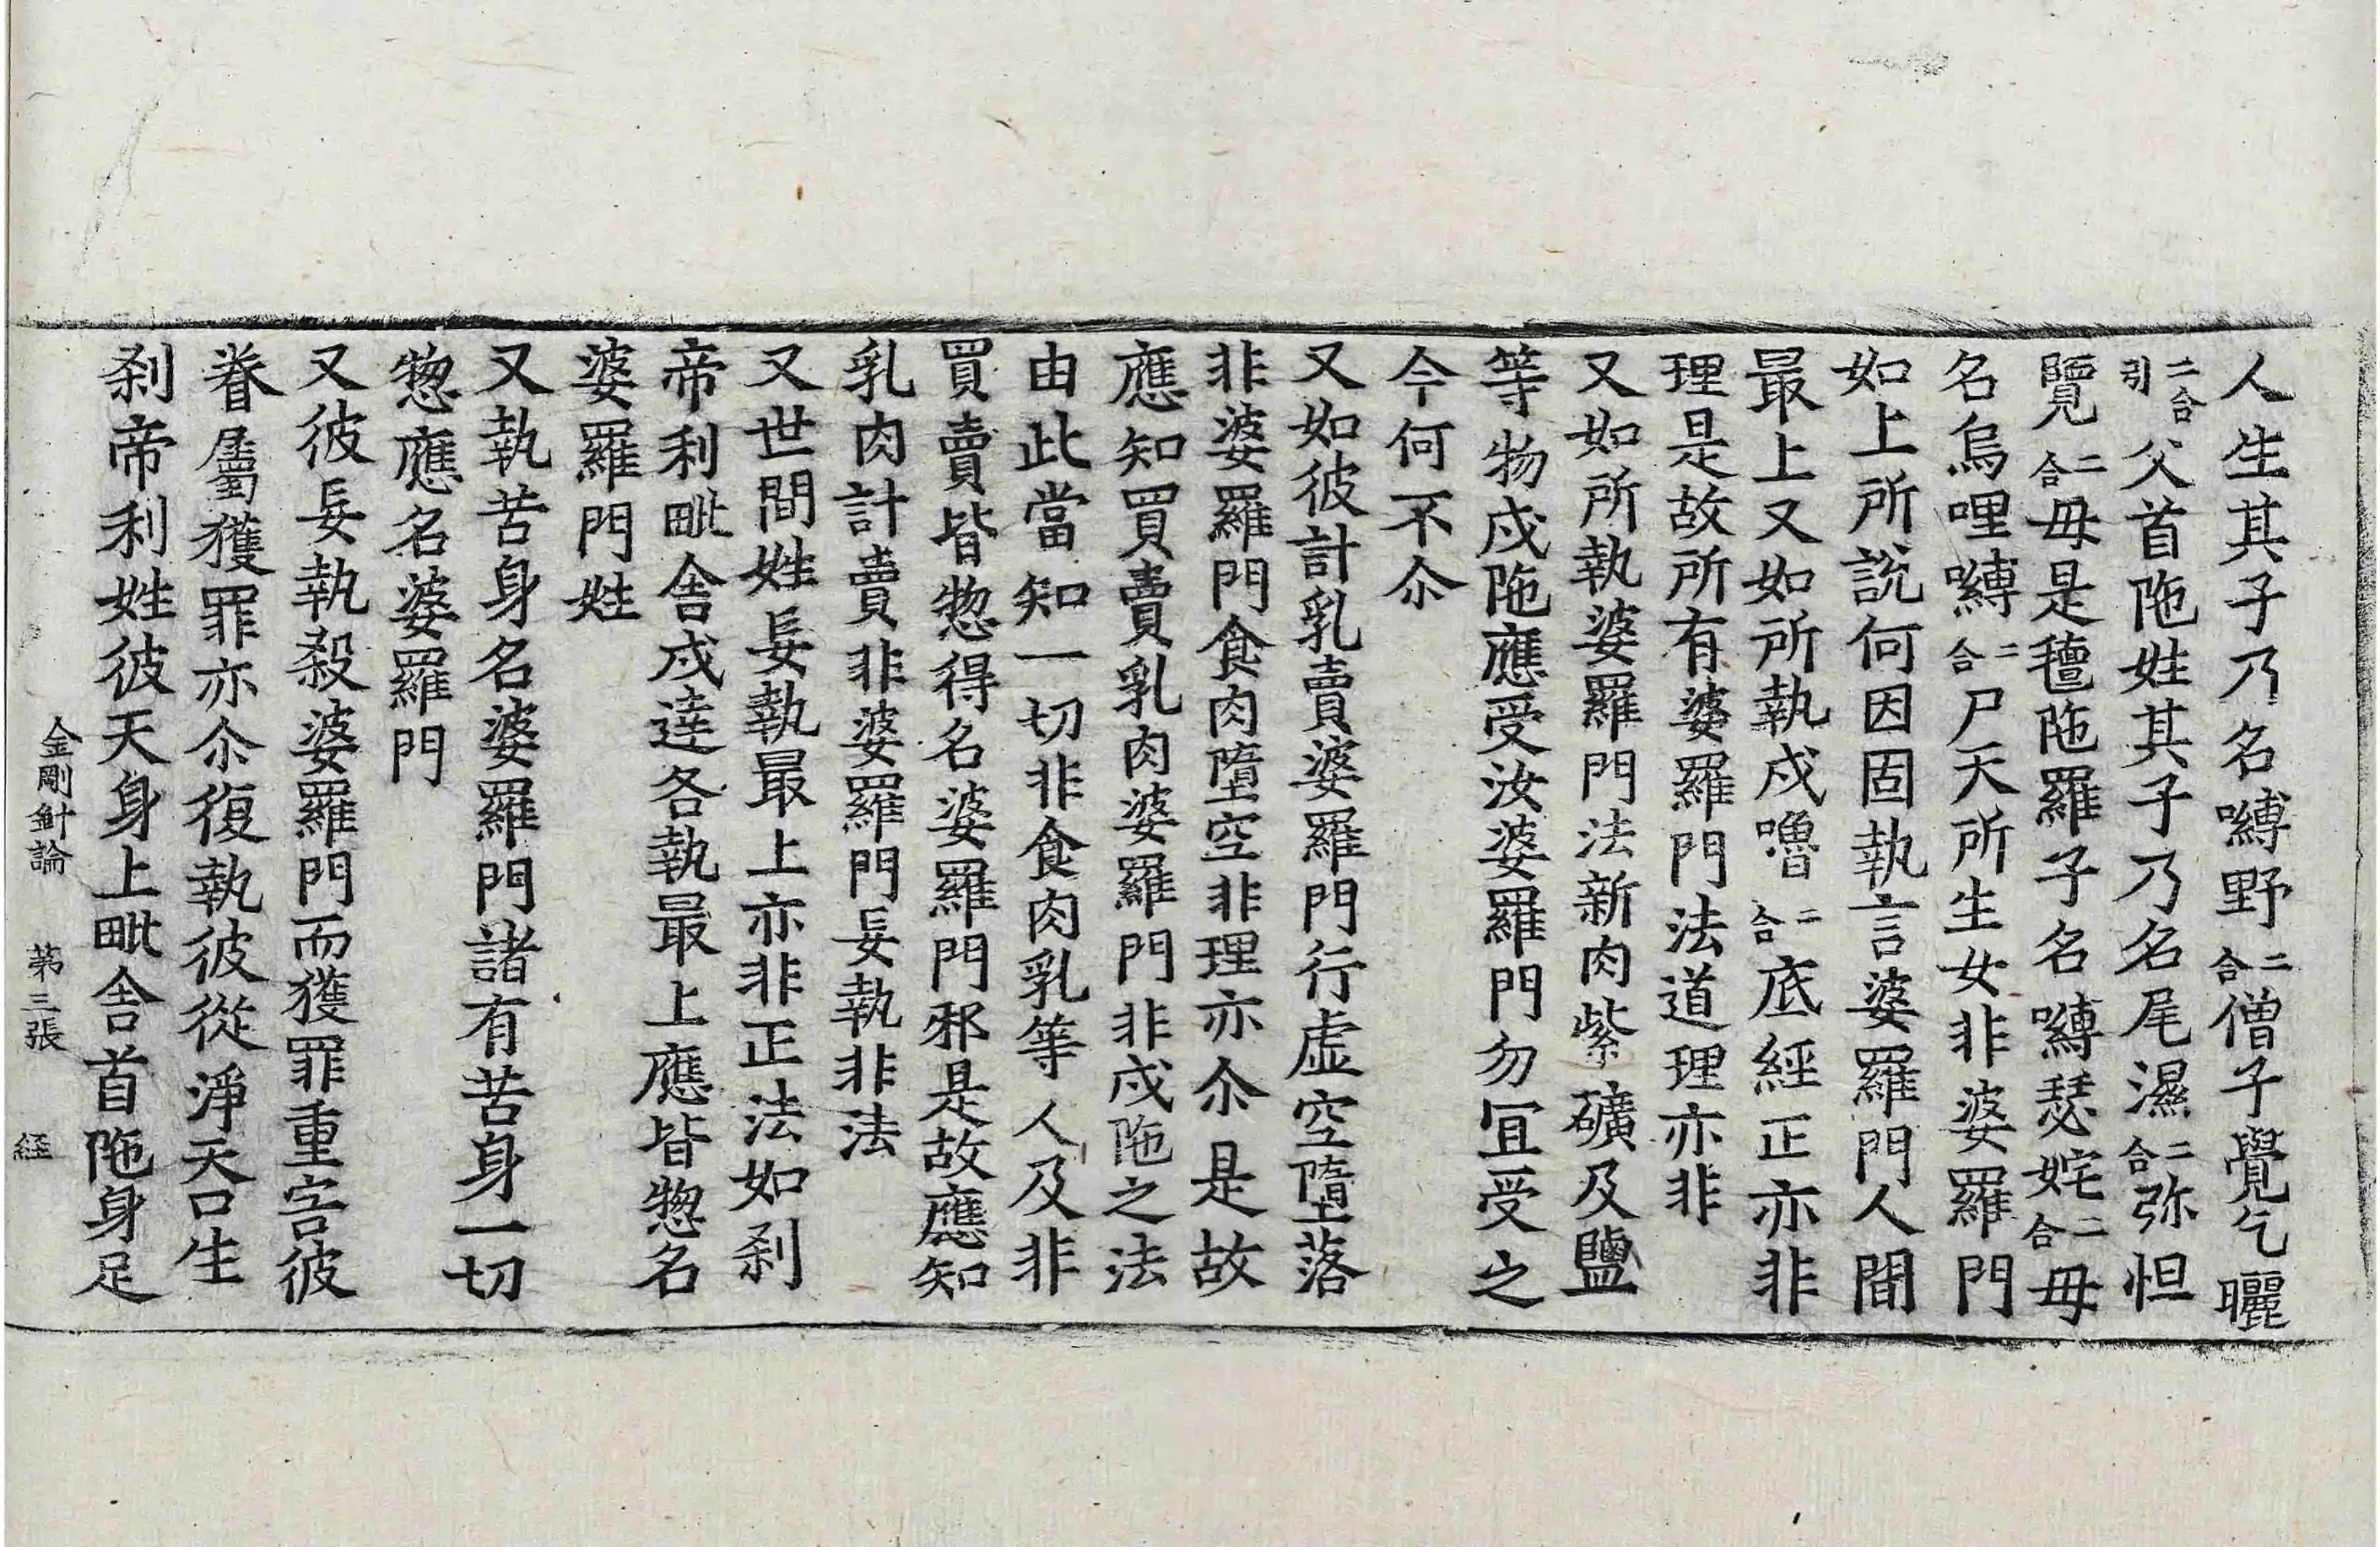 人生其子乃名嚩野二合僧子覺乞曬
二合引父首陁姓其子乃名尾濕二合弥怛
覽二合毋是䄠陁羅子名嚩瑟姹二合毋
名烏哩嚩二合尸天所生女非婆羅門
如上所說何因固執言婆羅門人間
最上又如所執戍嚕二合底經正亦非
理是故所有婆羅門法道理亦非
又如所執婆羅門法新肉紫礦及鹽
等物戍陁應受汝婆羅門勿冝受之
今何不尒
又如彼計乳賣婆羅門行虛空墮落
非婆羅門食肉墮空非理亦尒是故
應知買賣乳肉婆羅門非戍陁之法
由此當知一切非食肉乳等人及非
買賣皆惣得名婆羅門邪是故應知
乳肉計賣非婆羅門妄執非法
又世間姓妄執最上亦非正法如剎
帝利毗舍戍達各執最上應皆惣名
婆羅門姓
又執苦身名婆羅門諸有苦身一切
惣應名婆羅門
又彼妄執殺婆羅門而獲罪重害彼
眷屬獲罪亦尒復執彼從淨天口生
剎帝利姓彼天身上毗舍首陁身足
金剛針論 第三張 経